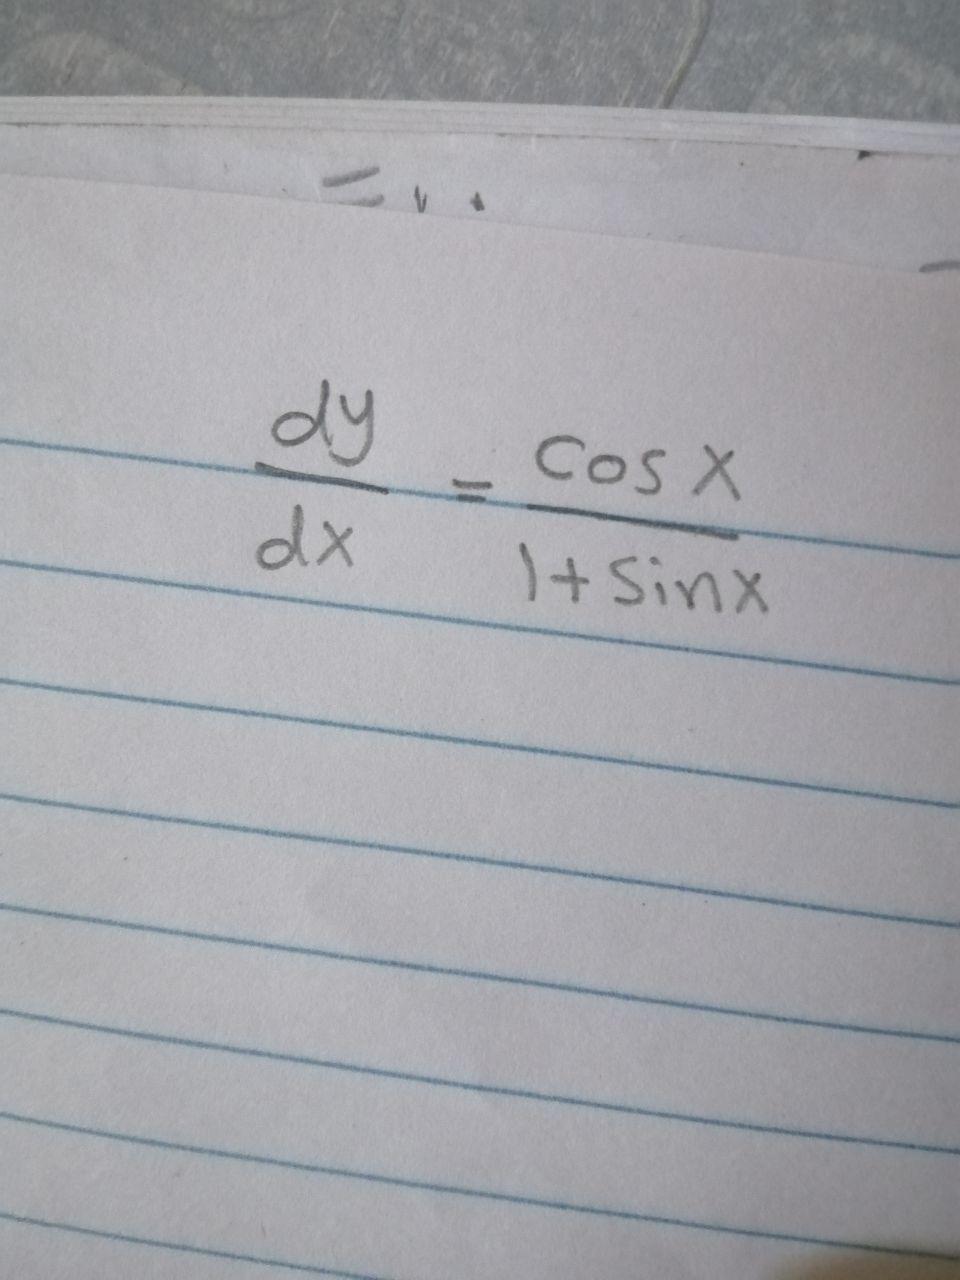 =
dy/dx = cos x/1+sinx